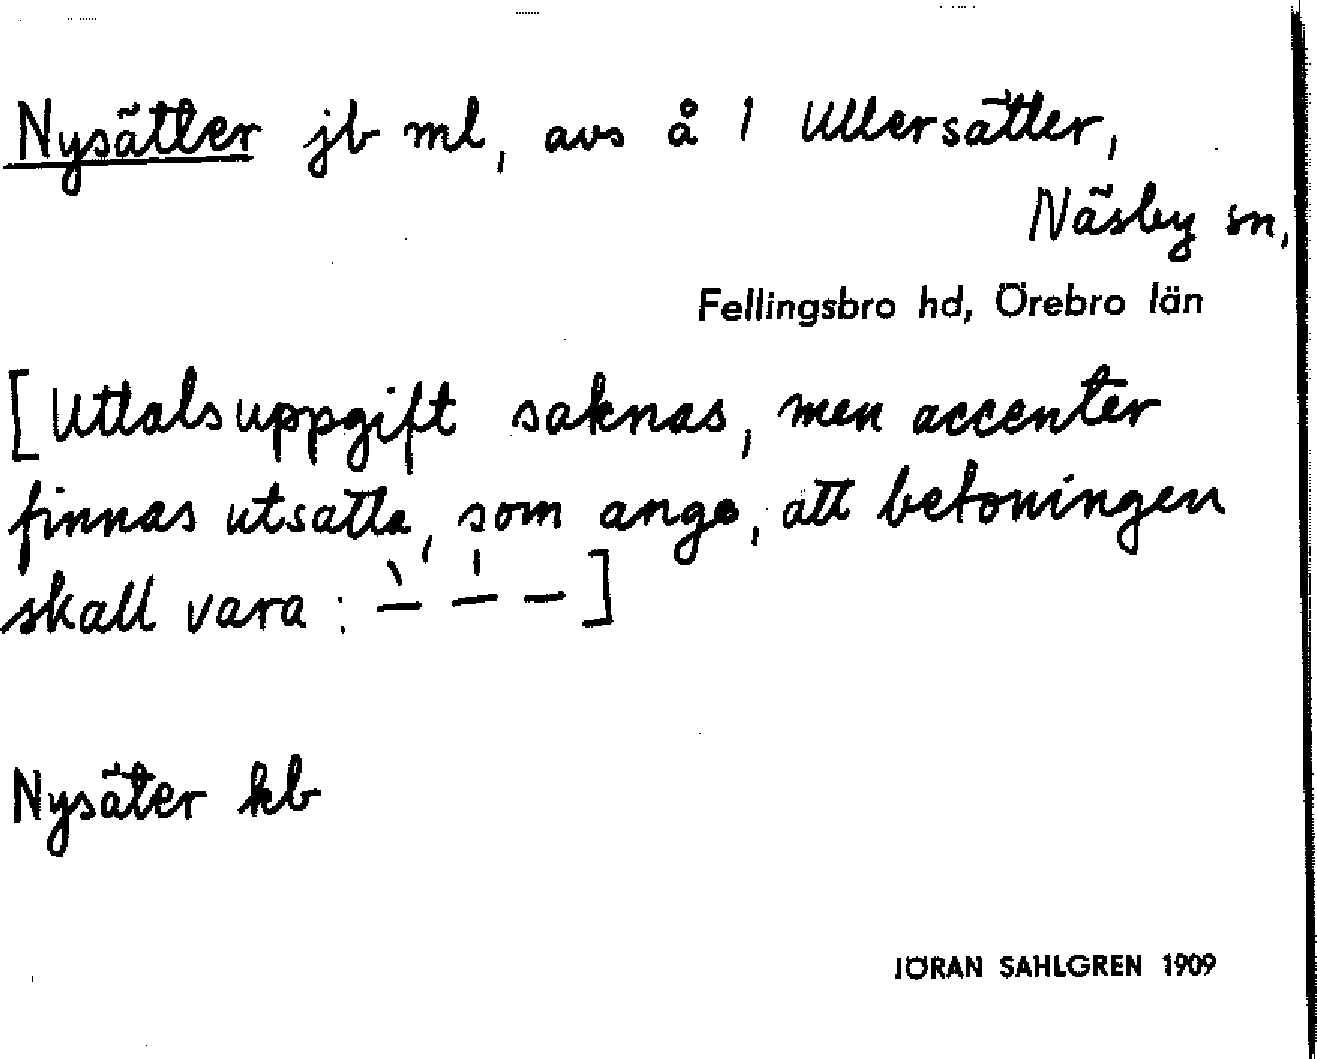 Nysätter jb ml, avs å 1 Ullersätter,
Näsby sn,
Fellingsbro hd, Örebro län
[Uttalsuppgift saknas, men accenter
finnas utsatta, som ange, att betoningen
skall vara: ˋ— ˈ— —]
Nysäter kb
JÖRAN SAHLGREN 1909